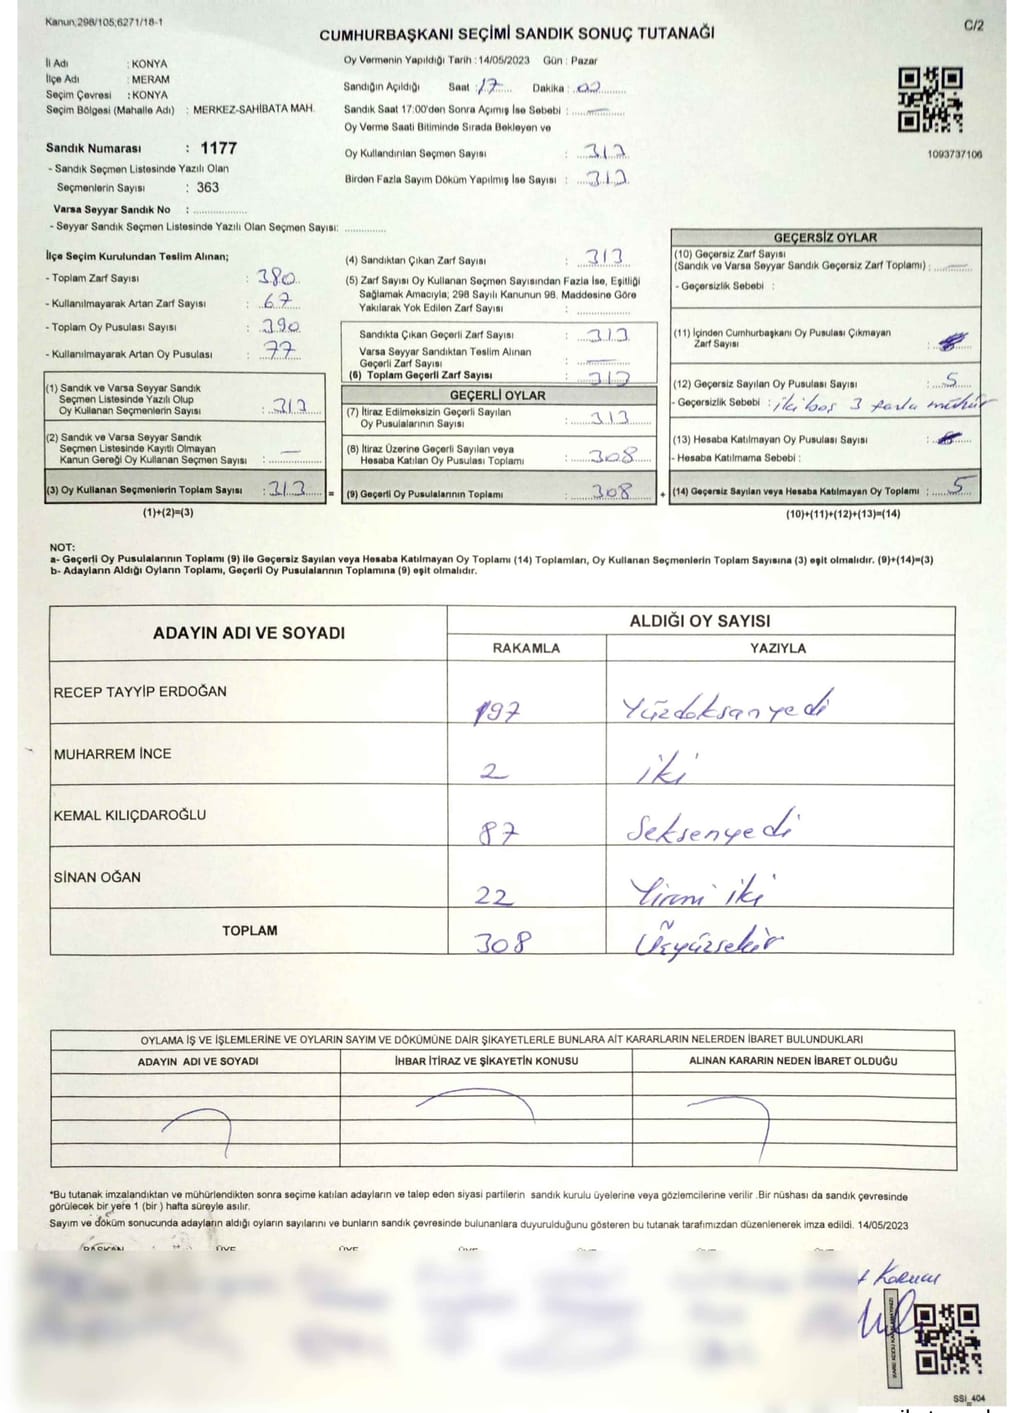 Kanun,298/105,6271/18-1
C/2
CUMHURBAŞKANI SEÇİMİ SANDIK SONUÇ TUTANAĞI
İl Adı : KONYA
İlçe Adı : MERAM
Seçim Çevresi : KONYA
Seçim Bölgesi (Mahalle Adı) : MERKEZ-SAHİBATA MAH.
Sandık Numarası : 1177
- Sandık Seçmen Listesinde Yazılı Olan
Seçmenlerin Sayısı : 363
Varsa Seyyar Sandık No : ..................
- Seyyar Sandık Seçmen Listesinde Yazılı Olan Seçmen Sayısı: .............
Oy Vermenin Yapıldığı Tarih : 14/05/2023 Gün : Pazar
Sandığın Açıldığı Saat : 17 Dakika : 00
Sandık Saat 17:00'den Sonra Açımış İse Sebebi : —
Oy Verme Saati Bitiminde Sırada Bekleyen ve
Oy Kullandırılan Seçmen Sayısı : 313
Birden Fazla Sayım Döküm Yapılmış İse Sayısı : 313
1093737106
İlçe Seçim Kurulundan Teslim Alınan;
- Toplam Zarf Sayısı : 380
- Kullanılmayarak Artan Zarf Sayısı : 67
- Toplam Oy Pusulası Sayısı : 390
- Kullanılmayarak Artan Oy Pusulası : 77
(1) Sandık ve Varsa Seyyar Sandık
Seçmen Listesinde Yazılı Olup
Oy Kullanan Seçmenlerin Sayısı : 313
(2) Sandık ve Varsa Seyyar Sandık
Seçmen Listesinde Kayıtlı Olmayan
Kanun Gereği Oy Kullanan Seçmen Sayısı : —
(3) Oy Kullanan Seçmenlerin Toplam Sayısı : 313 =
(1)+(2)=(3)
(4) Sandıktan Çıkan Zarf Sayısı : 313
(5) Zarf Sayısı Oy Kullanan Seçmen Sayısından Fazla İse, Eşitliği
Sağlamak Amacıyla; 298 Sayılı Kanunun 98. Maddesine Göre
Yakılarak Yok Edilen Zarf Sayısı : ...............
Sandıkta Çıkan Geçerli Zarf Sayısı : 313
Varsa Seyyar Sandıktan Teslim Alınan
Geçerli Zarf Sayısı : —
(6) Toplam Geçerli Zarf Sayısı : 313
GEÇERLİ OYLAR
(7) İtiraz Edilmeksizin Geçerli Sayılan
Oy Pusulalarının Sayısı : 313
(8) İtiraz Üzerine Geçerli Sayılan veya
Hesaba Katılan Oy Pusulası Toplamı : 308
(9) Geçerli Oy Pusulalarının Toplamı : 308 +
GEÇERSİZ OYLAR
(10) Geçersiz Zarf Sayısı
(Sandık ve Varsa Seyyar Sandık Geçersiz Zarf Toplamı) : —
- Geçersizlik Sebebi :
(11) İçinden Cumhurbaşkanı Oy Pusulası Çıkmayan
Zarf Sayısı :
(12) Geçersiz Sayılan Oy Pusulası Sayısı : 5
- Geçersizlik Sebebi : iki boş 3 fazla mühür
(13) Hesaba Katılmayan Oy Pusulası Sayısı :
- Hesaba Katılmama Sebebi :
(14) Geçersiz Sayılan veya Hesaba Katılmayan Oy Toplamı : 5
(10)+(11)+(12)+(13)=(14)
NOT:
a- Geçerli Oy Pusulalarının Toplamı (9) ile Geçersiz Sayılan veya Hesaba Katılmayan Oy Toplamı (14) Toplamları, Oy Kullanan Seçmenlerin Toplam Sayısına (3) eşit olmalıdır. (9)+(14)=(3)
b- Adayların Aldığı Oyların Toplamı, Geçerli Oy Pusulalarının Toplamına (9) eşit olmalıdır.
ADAYIN ADI VE SOYADI
ALDIĞI OY SAYISI
RAKAMLA YAZIYLA
RECEP TAYYİP ERDOĞAN 197 Yüzdoksanyedi
MUHARREM İNCE 2 iki
KEMAL KILIÇDAROĞLU 87 Seksenyedi
SİNAN OĞAN 22 Yirmi iki
TOPLAM 308 Üçyüzsekiz
OYLAMA İŞ VE İŞLEMLERİNE VE OYLARIN SAYIM VE DÖKÜMÜNE DAİR ŞİKAYETLERLE BUNLARA AİT KARARLARIN NELERDEN İBARET BULUNDUKLARI
ADAYIN ADI VE SOYADI İHBAR İTİRAZ VE ŞİKAYETİN KONUSU ALINAN KARARIN NEDEN İBARET OLDUĞU
*Bu tutanak imzalandıktan ve mühürlendikten sonra seçime katılan adayların ve talep eden siyasi partilerin sandık kurulu üyelerine veya gözlemcilerine verilir .Bir nüshası da sandık çevresinde
görülecek bir yere 1 (bir ) hafta süreyle asılır.
Sayım ve döküm sonucunda adayların aldığı oyların sayılarını ve bunların sandık çevresinde bulunanlara duyurulduğunu gösteren bu tutanak tarafımızdan düzenlenerek imza edildi. 14/05/2023
BAŞKAN ÜYE ÜYE
SSI_404